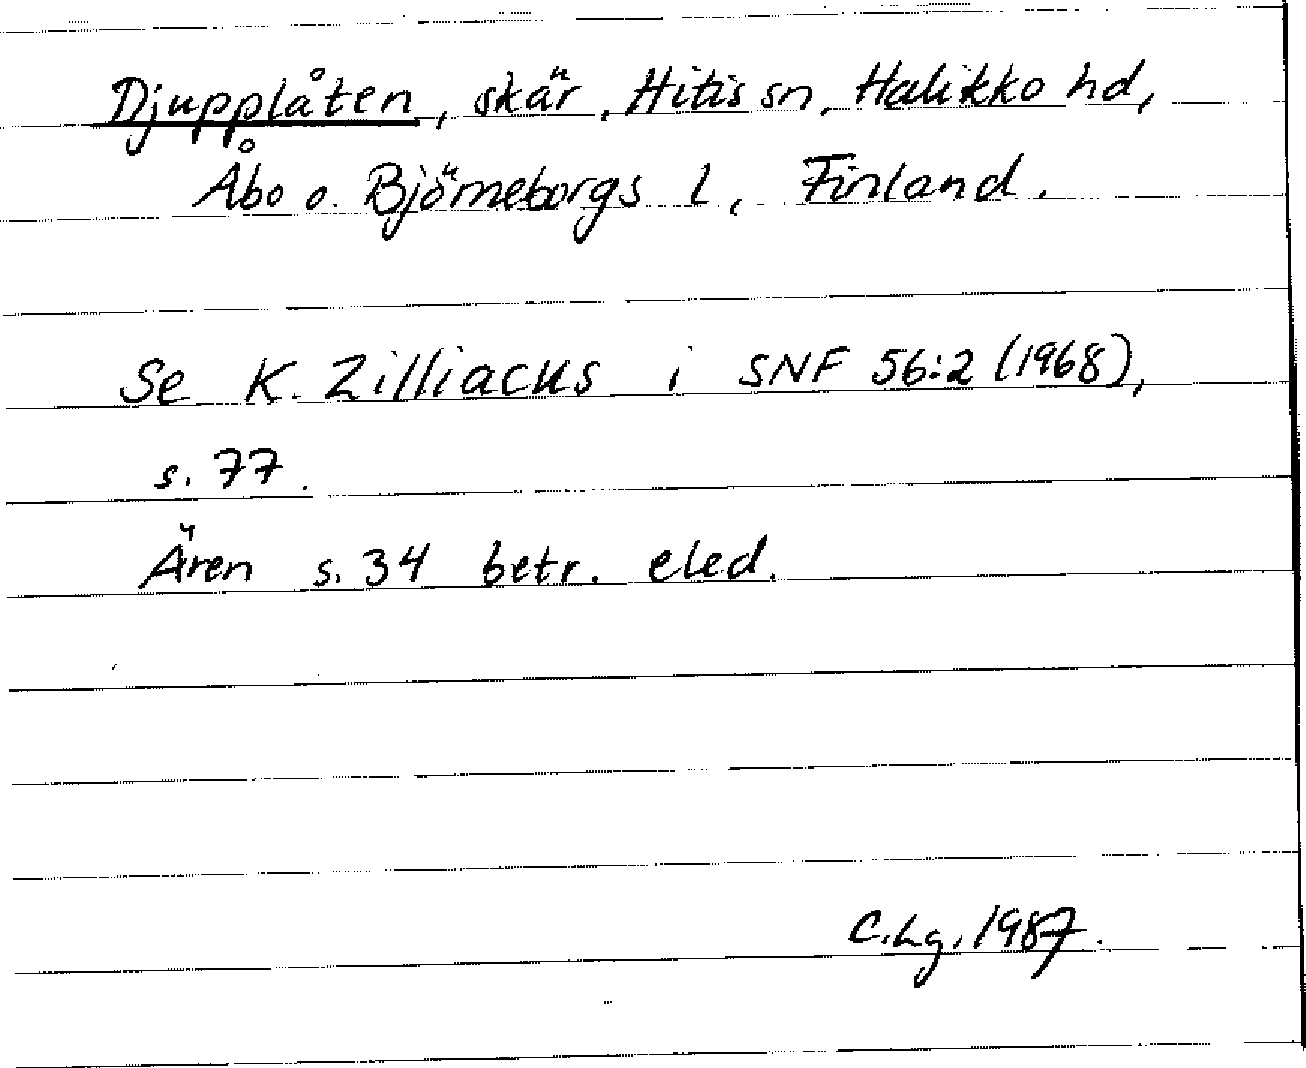 Djupplåten, skär, Hitis sn, Halikko hd,
Åbo o. Björneborgs l, Finland.
Se K. Zilliacus i SNF 56:2 (1968),
s. 77.
Ären s. 34 betr. eled.
C.Lg. 1987.